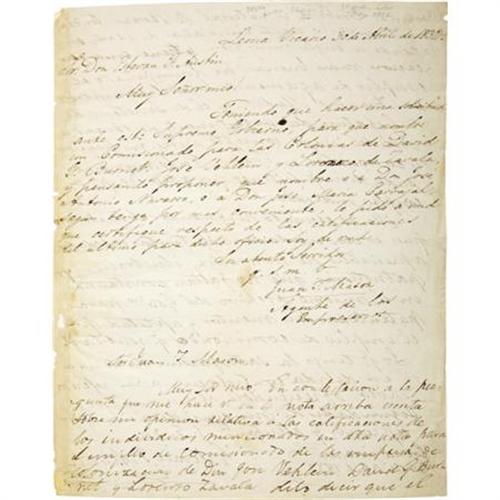 Leona Vicario 30 de Abril de 1832
Sor Don Estevan F. Austin
Muy Señor mio
Teniendo que hacer una solicitud
ante este Supremo Gobierno para que nombre
un Comisionado para las Colonias de David
G. Burnet José Vehlein y Lorenzo de Zavala,
y pensando proponer que nombre o a Don José
Antonio Navarro, o a Don José Maria Carbajal
segun tenga por mas conveniente, le pido a Vmd
que certifique respecto de las calificaciones
del ultimo para dicho oficio
Su atento Servidor
q. s. m. b.
Juan T. Mason
Agente de los
Empresarios
Sor Juan T. Mason
Muy Sor mio En contestacion a la pre-
gunta que me hace Vd en la nota arriba escrita
sobre mi opinion relativa a las calificaciones
de los individuos mencionados en dha nota para
el empleo de comisionado de las empresas de
colonizacion de Don Jose Vehlein David G. Bur-
net y Lorenzo Zavala debo decir que el